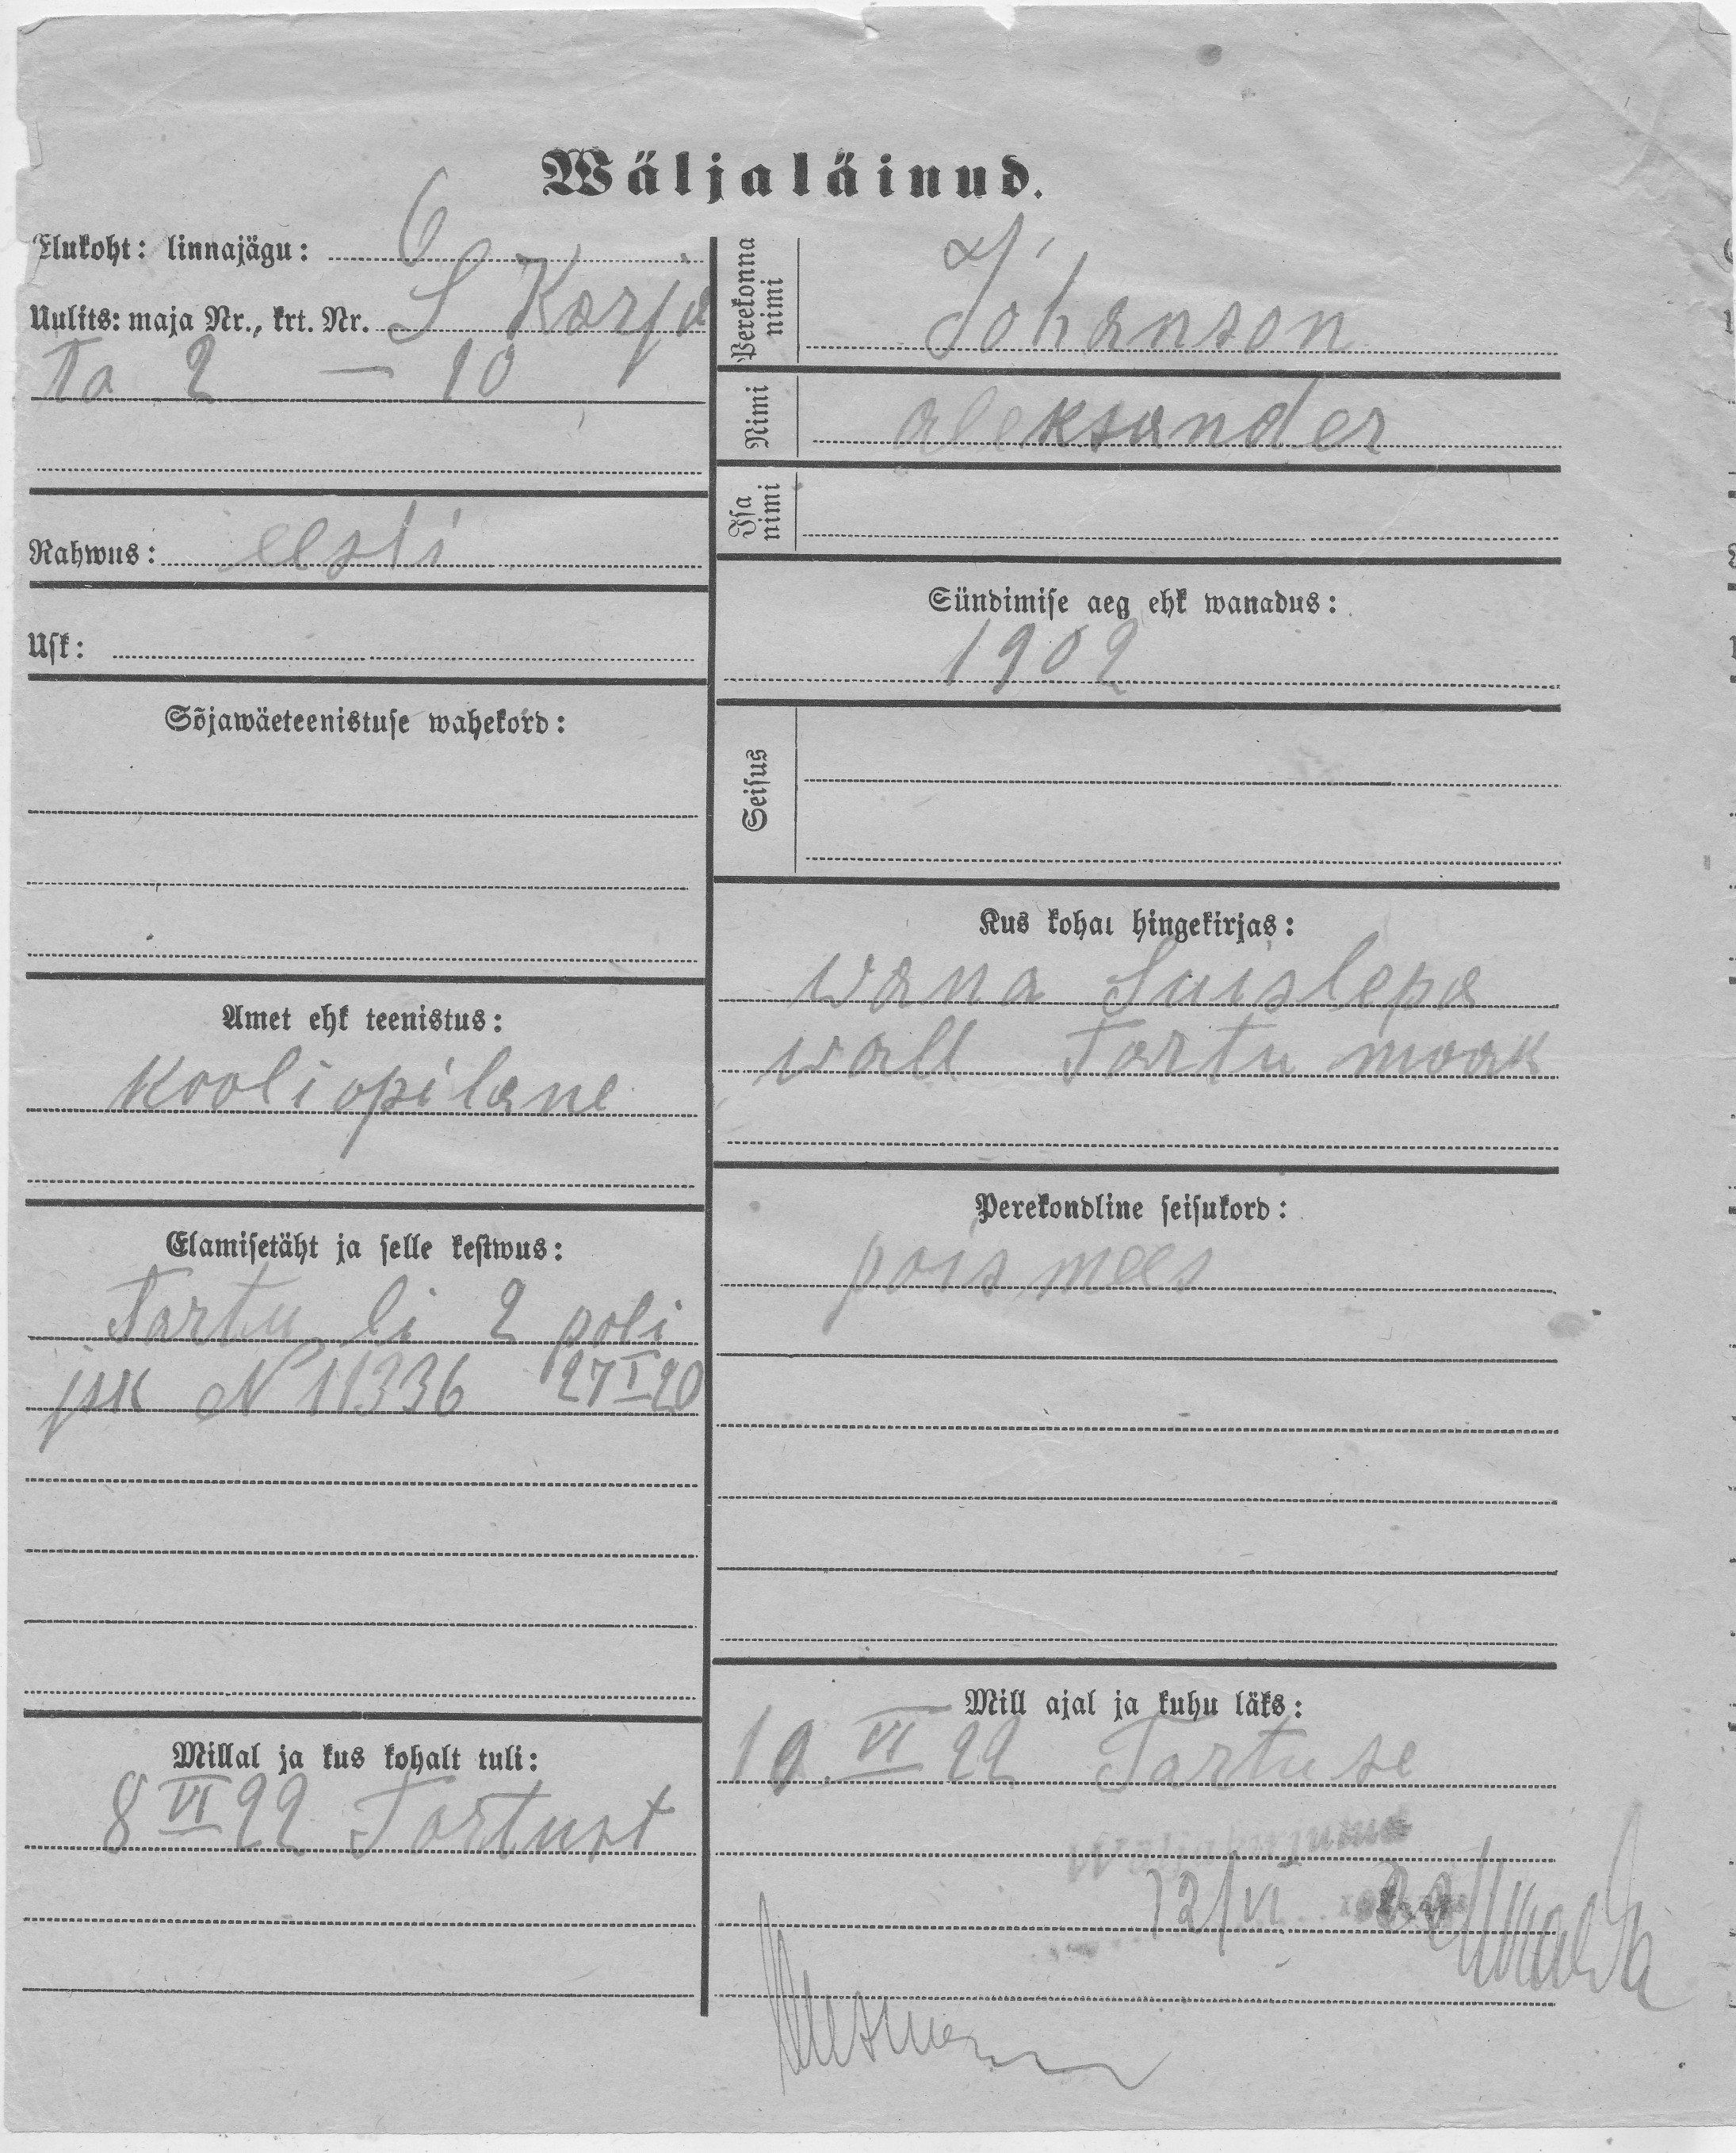 Wäljaläinud.
Elukoht: linnajägu: 6
Uulits: maja Nr., krt. Nr. S Karja
Ta 2 — 10
Rahwus: eesti
Usk:
Sõjawäeteenistuse wahekord:
Amet ehk teenistus:
kooliopilane
Elamisetäht ja selle kestwus:
Tartu li 2 poli
jsk N 11336 27 I 20
Millal ja kus kohalt tuli:
8 VI 22 Tartust
Perekonna nimi Johanson
Nimi aleksander
Isa nimi
Sündimise aeg ehk wanadus:
1902
Seisus
Kus kohal hingekirjas:
wana Suislepa
wall Tartu maak
Perekondline seisukord:
pois mees
Mill ajal ja kuhu läks:
10. VI 22 Tartuse
12/VI